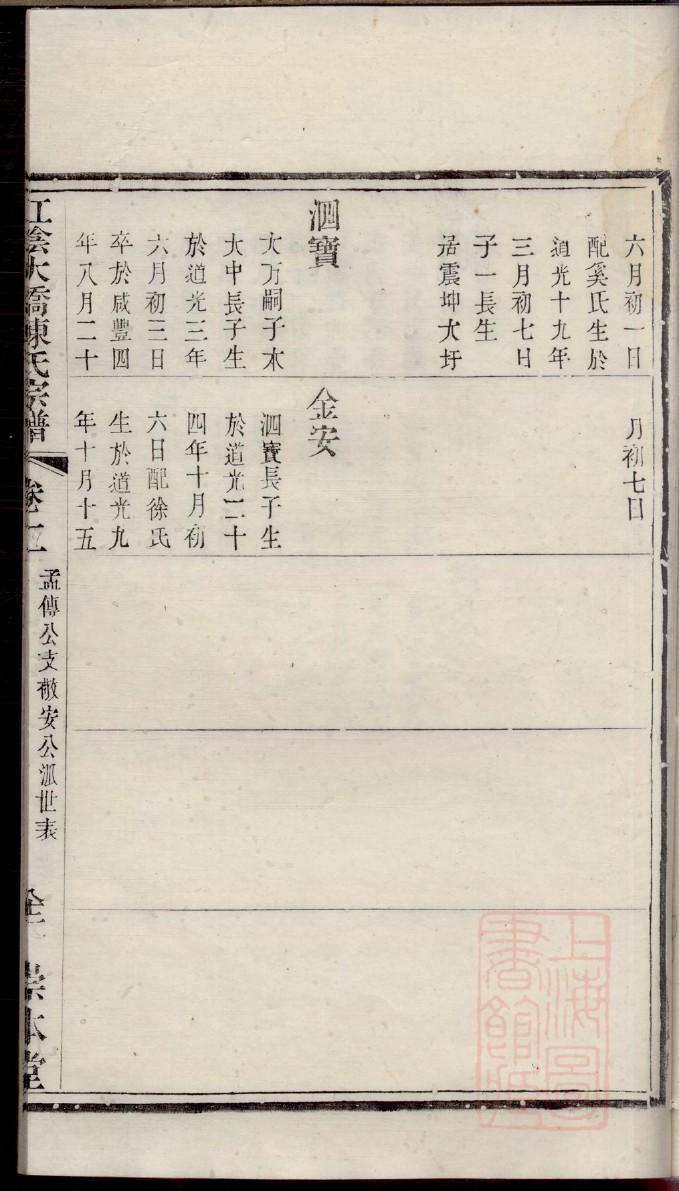 六月初一日
配奚氏生於
道光十九年
三月初七日
子一長生
居震坤大圩
泗寶
大万嗣子本
大中長子生
於道光三年
六月初三日
卒於咸豐四
年八月二十
月初七日
金安
泗寶長子生
於道光二十
四年十月初
六日配徐氏
生於道光九
年十月十五
江陰大橋陳氏宗譜
孟傳公支橄安公派世表
崇本堂
上海圖書館藏